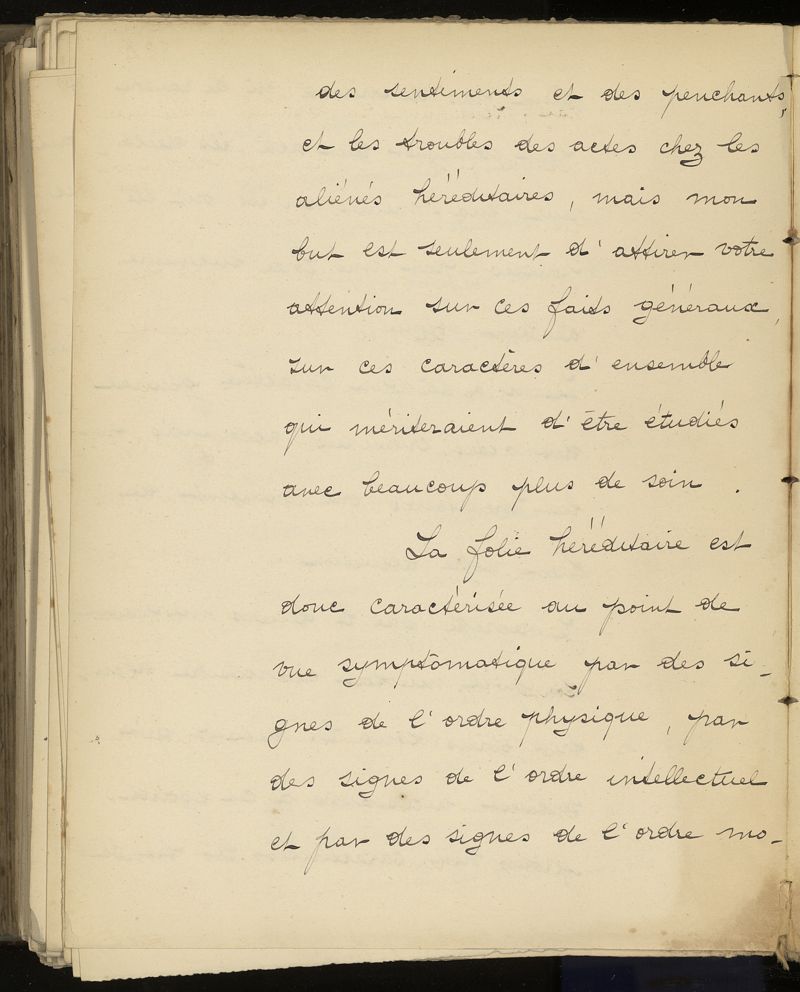 des sentiments et des penchants,
et les troubles des actes chez les
aliénés héréditaires, mais mon
but est seulement d'attirer votre
attention sur ces faits généraux,
sur ces caractères d'ensemble
qui mériteraient d'être étudiés
avec beaucoup plus de soin.
La folie héréditaire est
donc caractérisée au point de
vue symptômatique par des si-
gnes de l'ordre physique, par
des signes de l'ordre intellectuel
et par des signes de l'ordre mo-